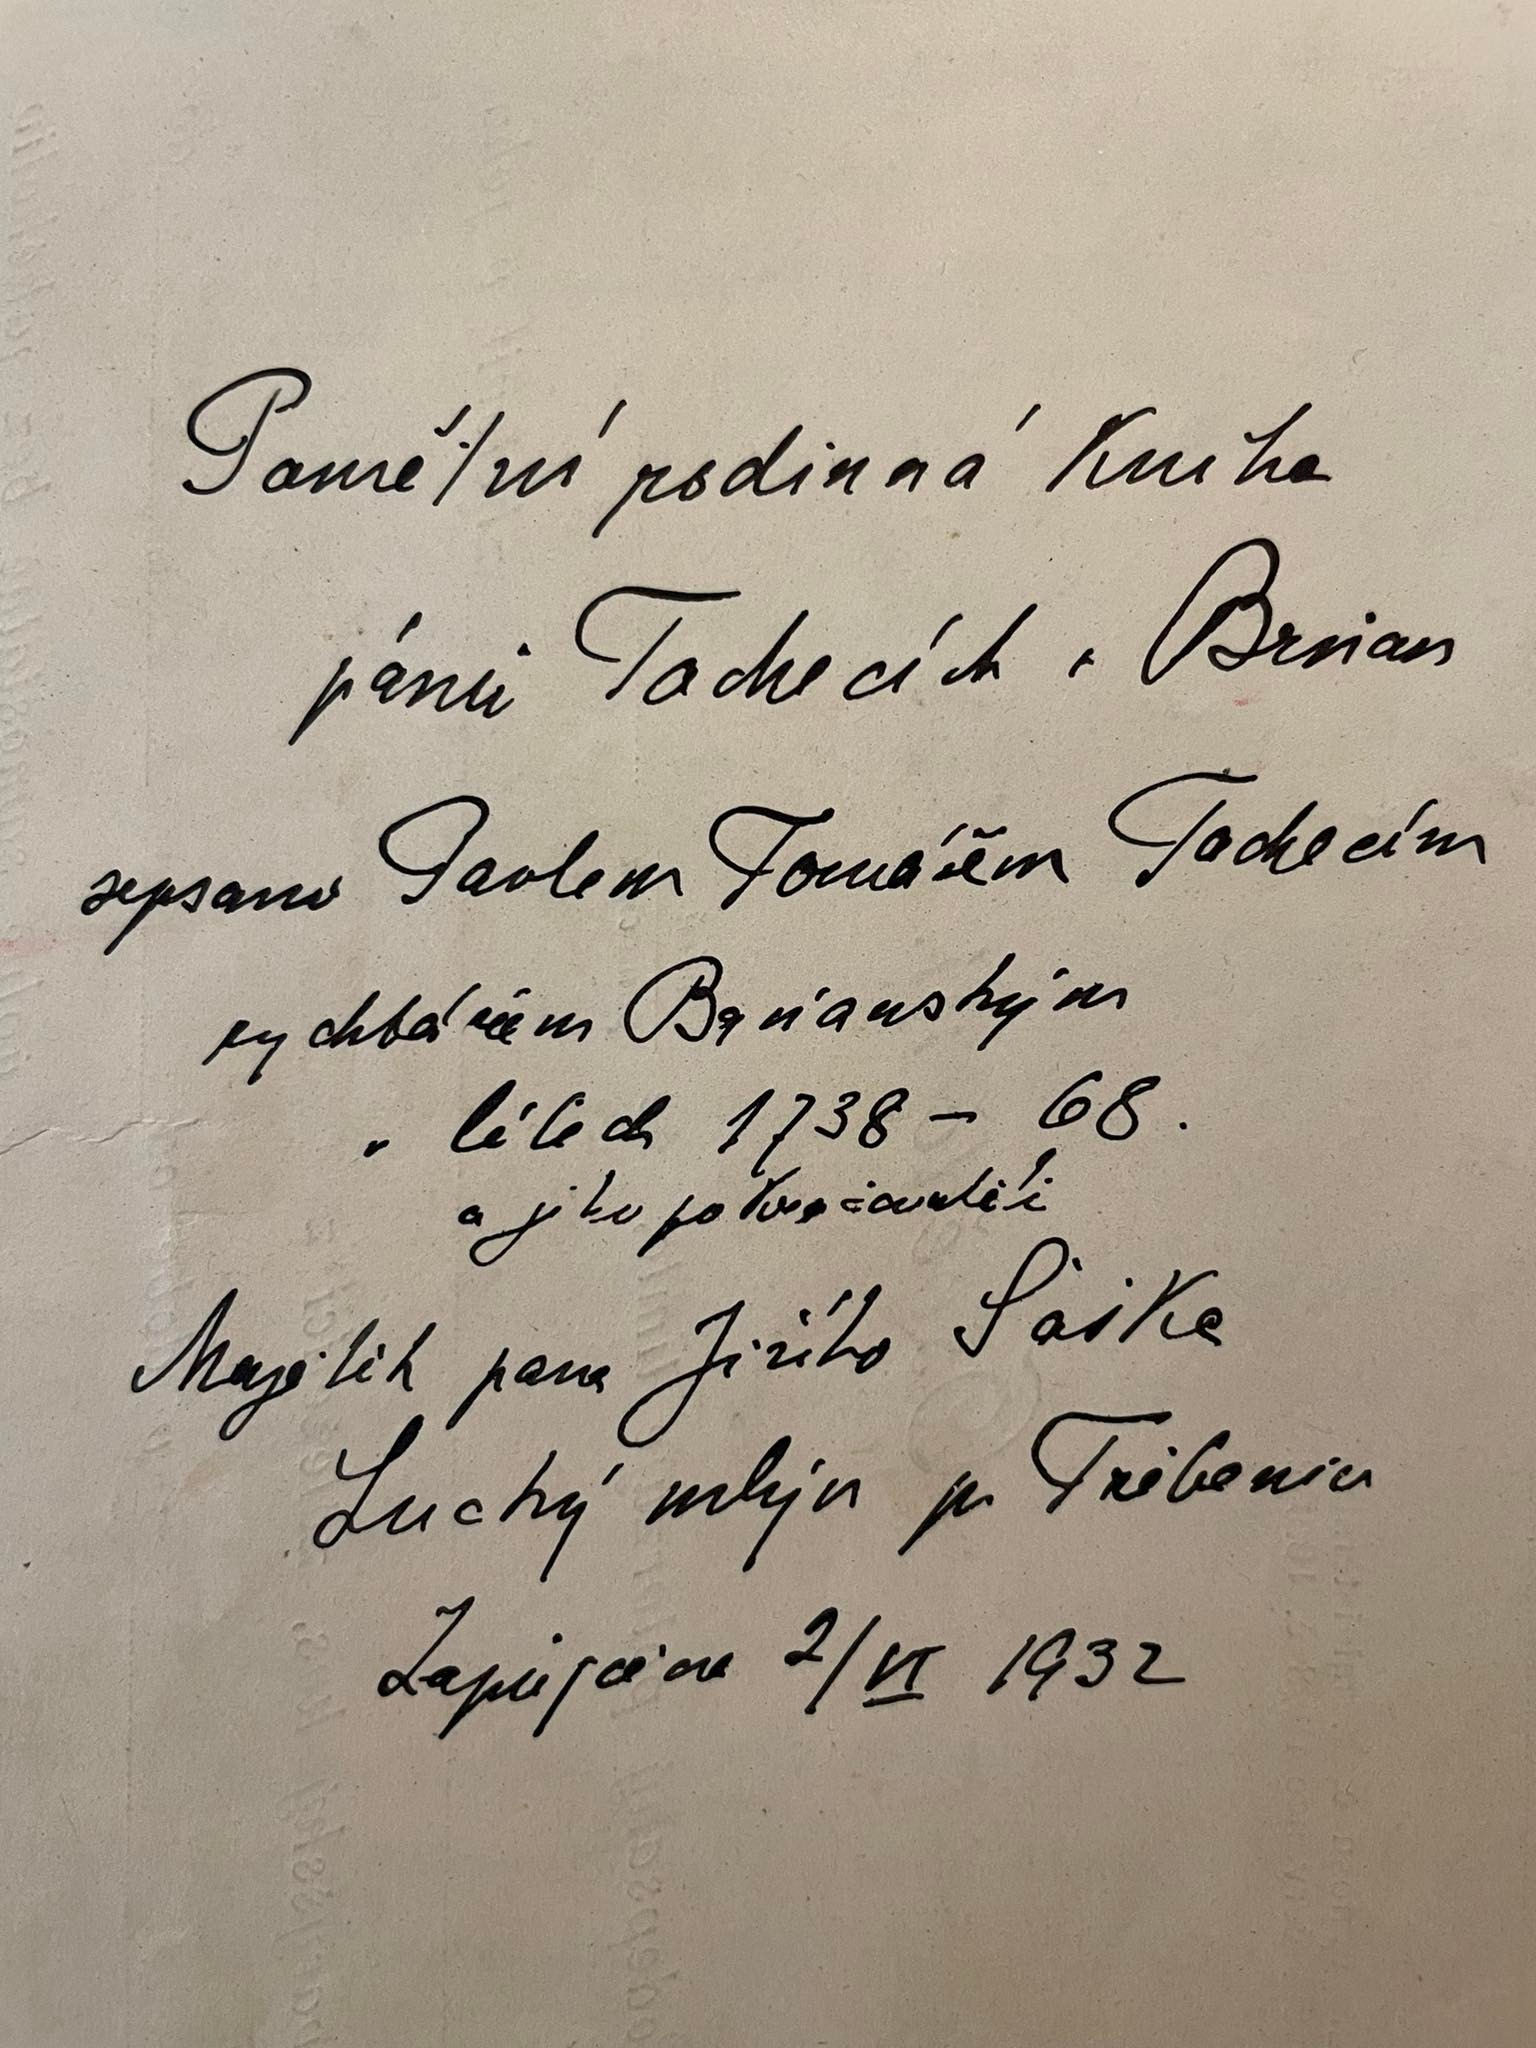 Pamětní rodinná kniha
pánů Tachecích v Brňan
sepsaná Pavlem Tomášem Tachecím
rychtářem Brňanským
v létech 1738 – 68.
a jeho pokračovateli
Majetek pana Jiřího Šaška
Suchý mlýn p. Třebenic
Zapůjčena 2/VI 1932